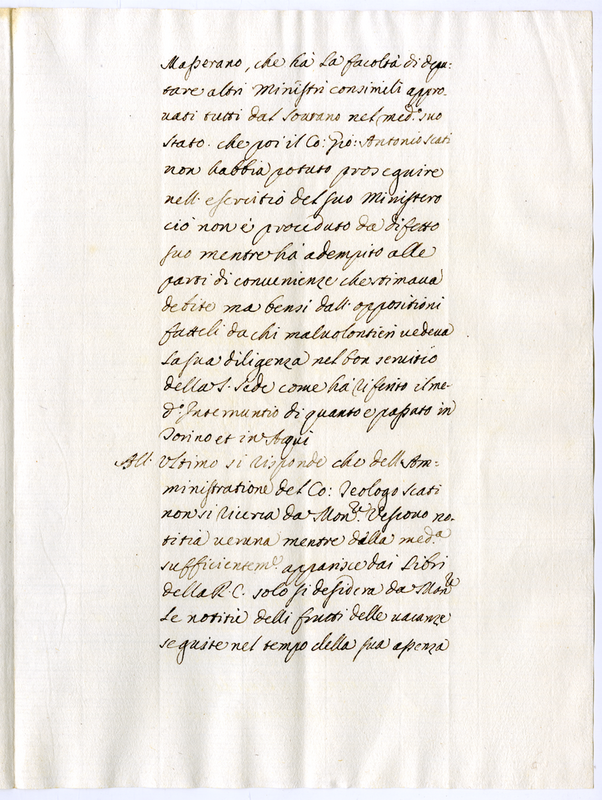 Masserano, che hà la facoltà di depu:
tare altri Ministri consimili appro.
uati tutti dal Sourano nel med.º suo
stato. che poi il Co: Gio: Antonio scati
non habbia potuto proseguire
nell esercitio del suo Ministero
ciò non è proceduto da difetto
suo mentre hà adempito alle
parti di conuenienze che stimaua
debite ma bensi dall oppositioni
fatteli da chi maluolontieri uedeua
la sua diligenza nel bon seruitio
della S. Sede come hà riferito il me-
d.º Internuntio di quanto e passato in
Torino et in Aqui
All Vltimo si risponde che dell Am-
ministratione del Co: Teologo scati
non si ricerca da Mon.re Vescouo no-
titia ueruna mentre dalla med.a
sufficientem.e apparisce dai Libri
della R. C. solo si desidera da Mon.re
le notitie delli frutti delle uacanze
seguite nel tempo della sua assenza